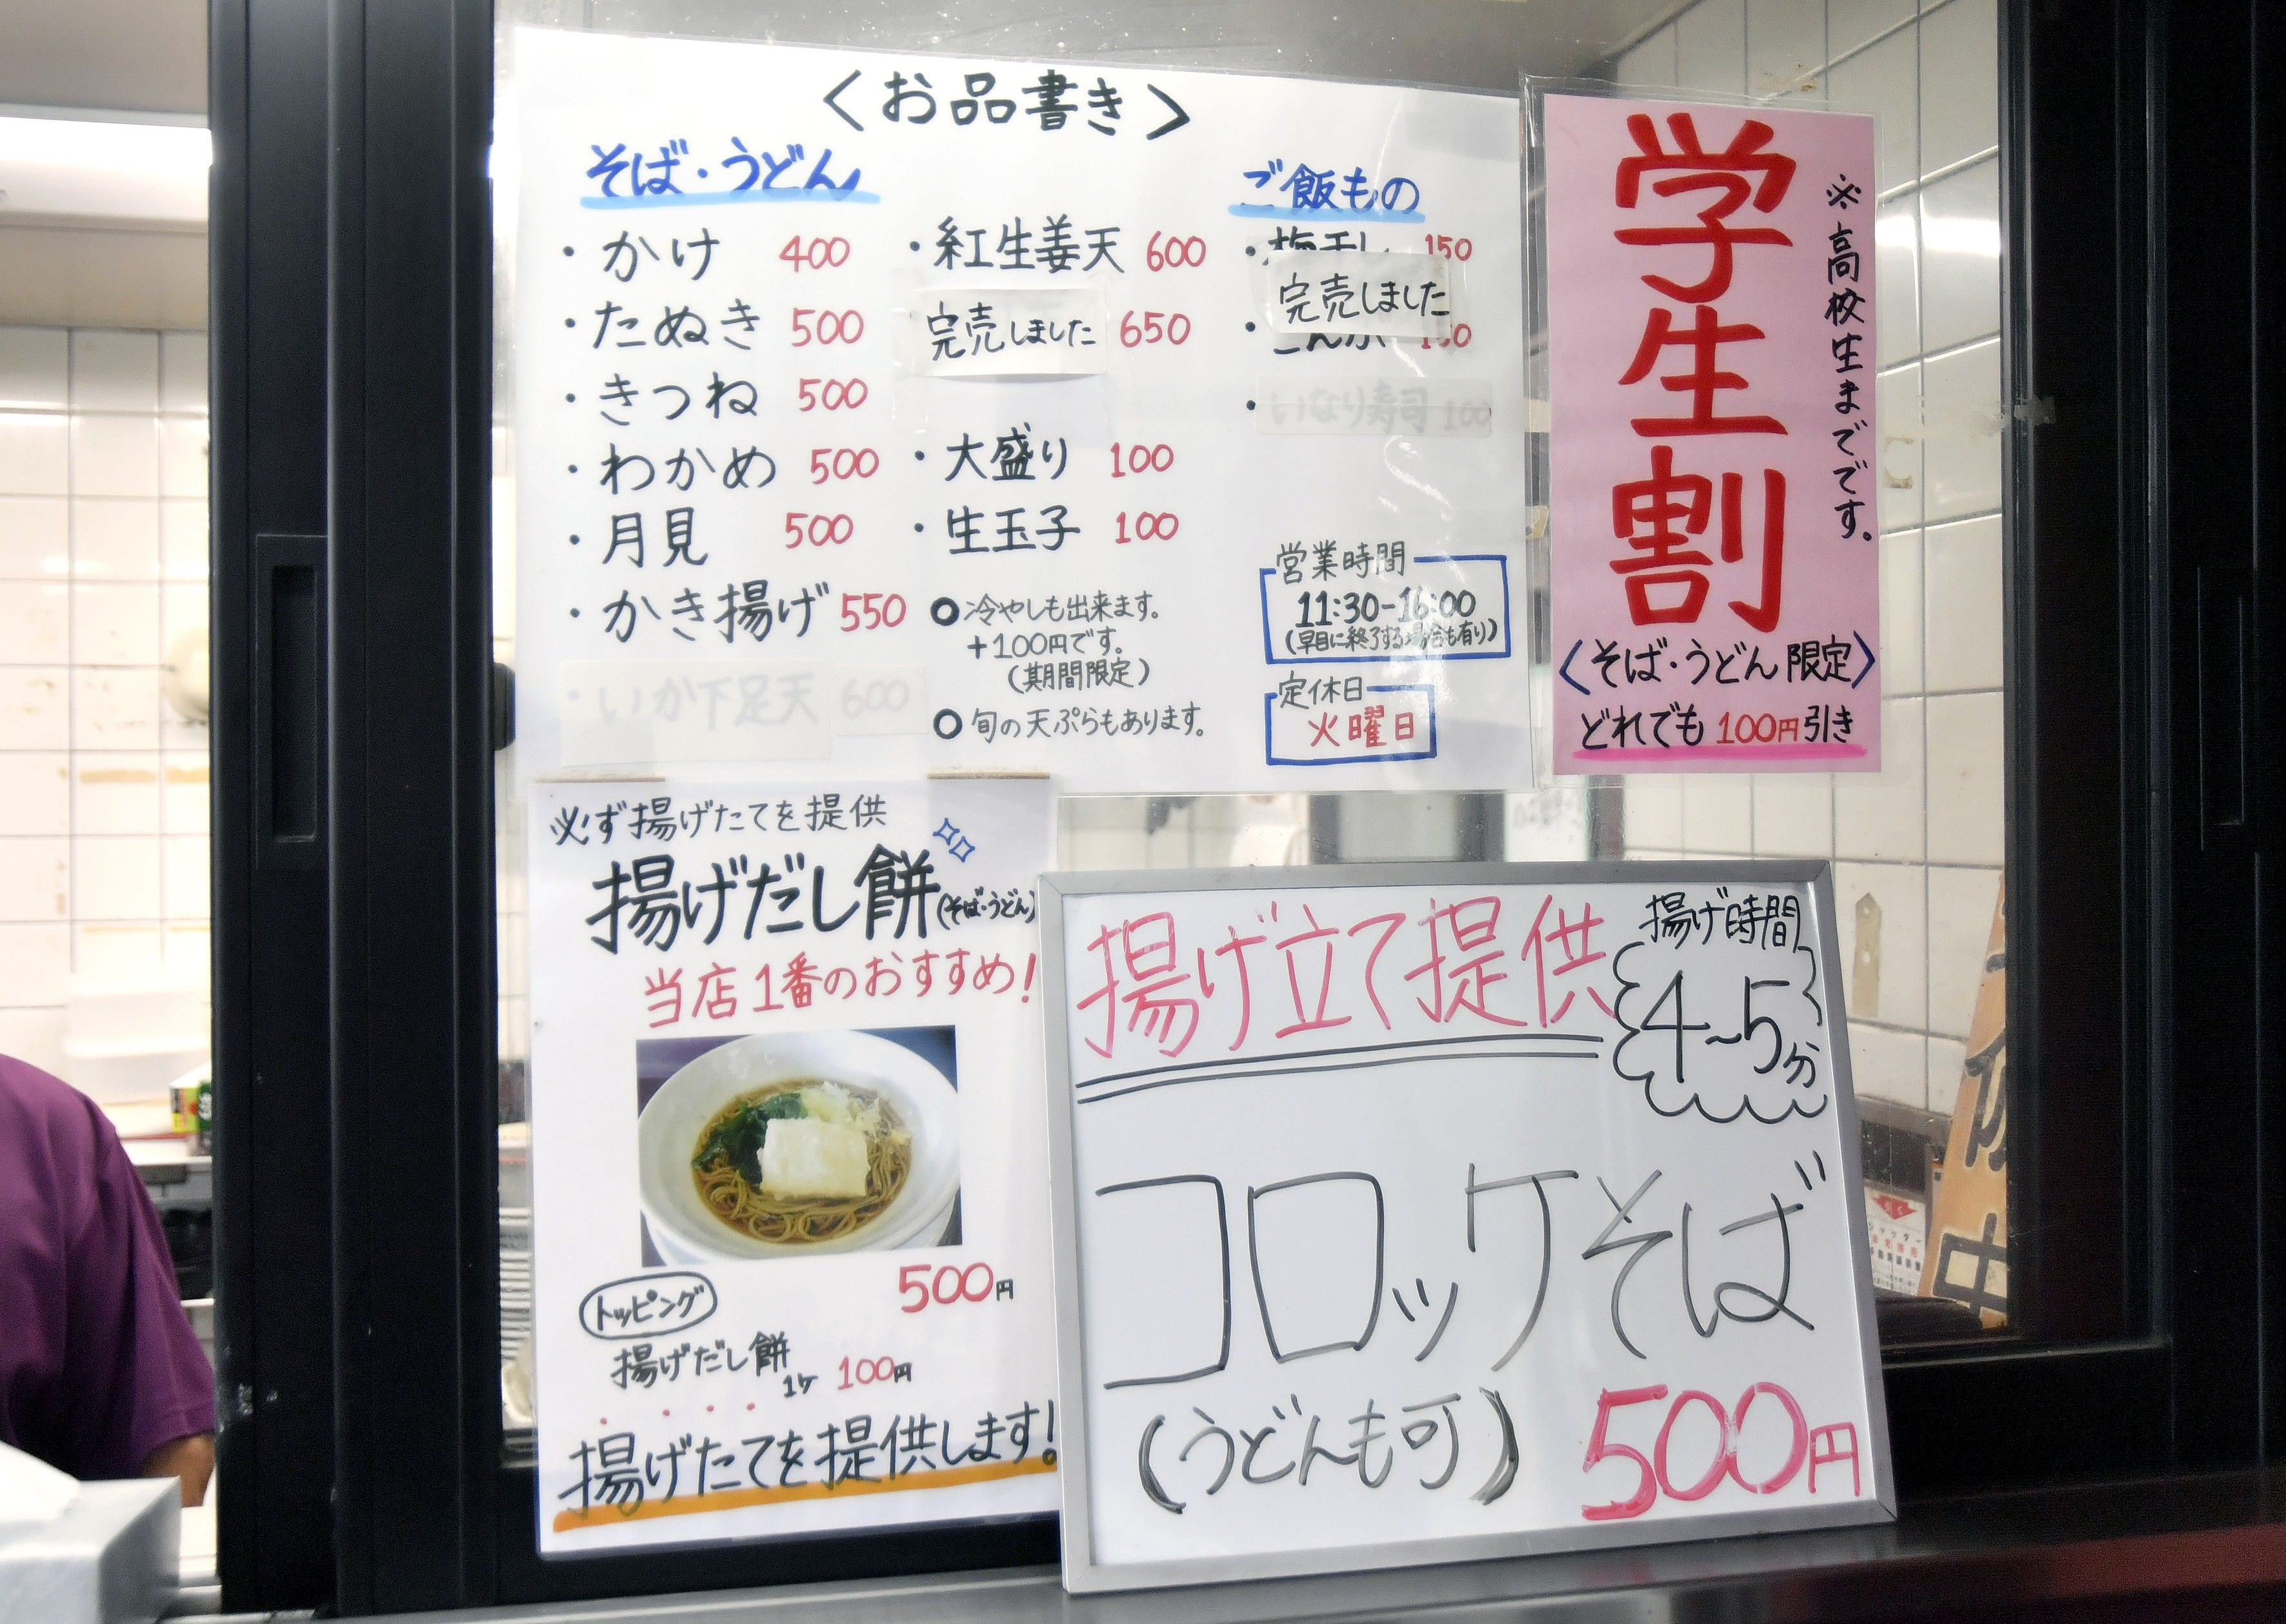 〈お品書き〉
そば・うどん
・かけ 400
・たぬき 500
・きつね 500
・わかめ 500
・月見 500
・かき揚げ 550
・いか下足天 600
・紅生姜天 600
完売しました 650
・大盛り 100
・生玉子 100
○冷やしも出来ます。
+100円です。
(期間限定)
○旬の天ぷらもあります。
ご飯もの
・梅干し 150
完売しました
・こんぶ 150
・いなり寿司 100
営業時間
11:30-16:00
(早目に終了する場合も有り)
定休日
火曜日
学生割
※高校生までです。
〈そば・うどん限定〉
どれでも100円引き
必ず揚げたてを提供
揚げだし餅(そば・うどん)
当店1番のおすすめ!
500円
トッピング
揚げだし餅
1ヶ 100円
揚げたてを提供します!
揚げ立て提供
揚げ時間
4~5分
コロッケそば
(うどんも可) 500円
中